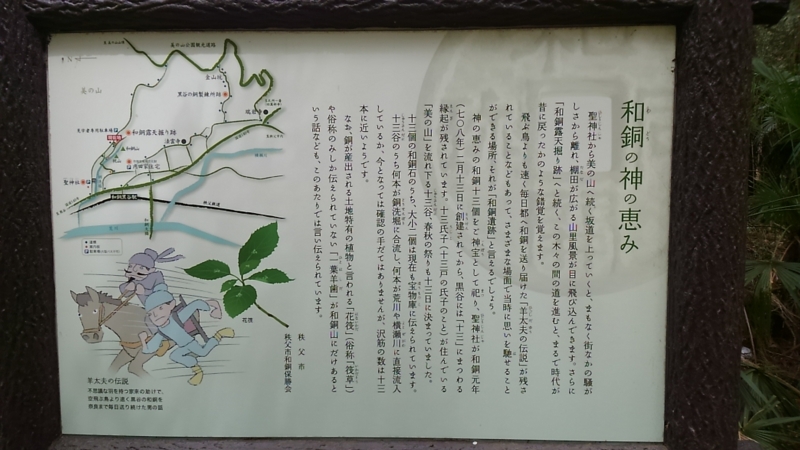 和銅の神の恵み
聖神社から美の山へ続く坂道を上っていくと、まもなく街なかの騒が
しさから離れ、棚田が広がる山里風景が目に飛び込んできます。さらに
「和銅露天掘り跡」へと続く、この木々の間の道を進むと、まるで時代が
昔に戻ったかのような錯覚を覚えます。
飛ぶ鳥よりも速く毎日都へ和銅を送り届けた「羊太夫の伝説」が残さ
れていることなどもあって、さまざまな場面で当時に思いを馳せること
ができる場所、それが「和銅遺跡」と言えるでしょう。
神の恵みの和銅十三個をご神宝として祀り、聖神社が和銅元年
(七〇八年)二月十三日に創建されてから、黒谷には「十三」にまつわる
縁起が残されています。十三氏子(十三戸の氏子のこと)が住んでいる
「美の山」を流れ下る十三谷、春秋の祭りも十三日に決まっていました。
十三個の和銅石のうち、大小二個は現在も宝物庫に伝えられています。
十三谷のうち何本が銅洗堀に合流し、何本が荒川や横瀬川に直接流入
しているか、今となっては確認の手だてはありませんが、沢筋の数は十三
本に近いようです。
なお、銅が産出される土地特有の植物と言われる「花筏」(俗称「筏草」)
や俗称のみしか伝えられていない「一葉羊歯」が和銅山にだけあると
いう話なども、このあたりでは言い伝えられています。
秩父市
秩父市和銅保勝会
美の山公園観光道路
美の山
金山坑
黒谷の銅製錬所跡
和銅露天掘り跡
法雲寺
聖神社
和銅黒谷駅
秩父鉄道
花筏
羊太夫の伝説
不思議な羽を持つ家来の助けで、
空飛ぶ鳥より速く黒谷の和銅を
奈良まで毎日送り続けた男の話